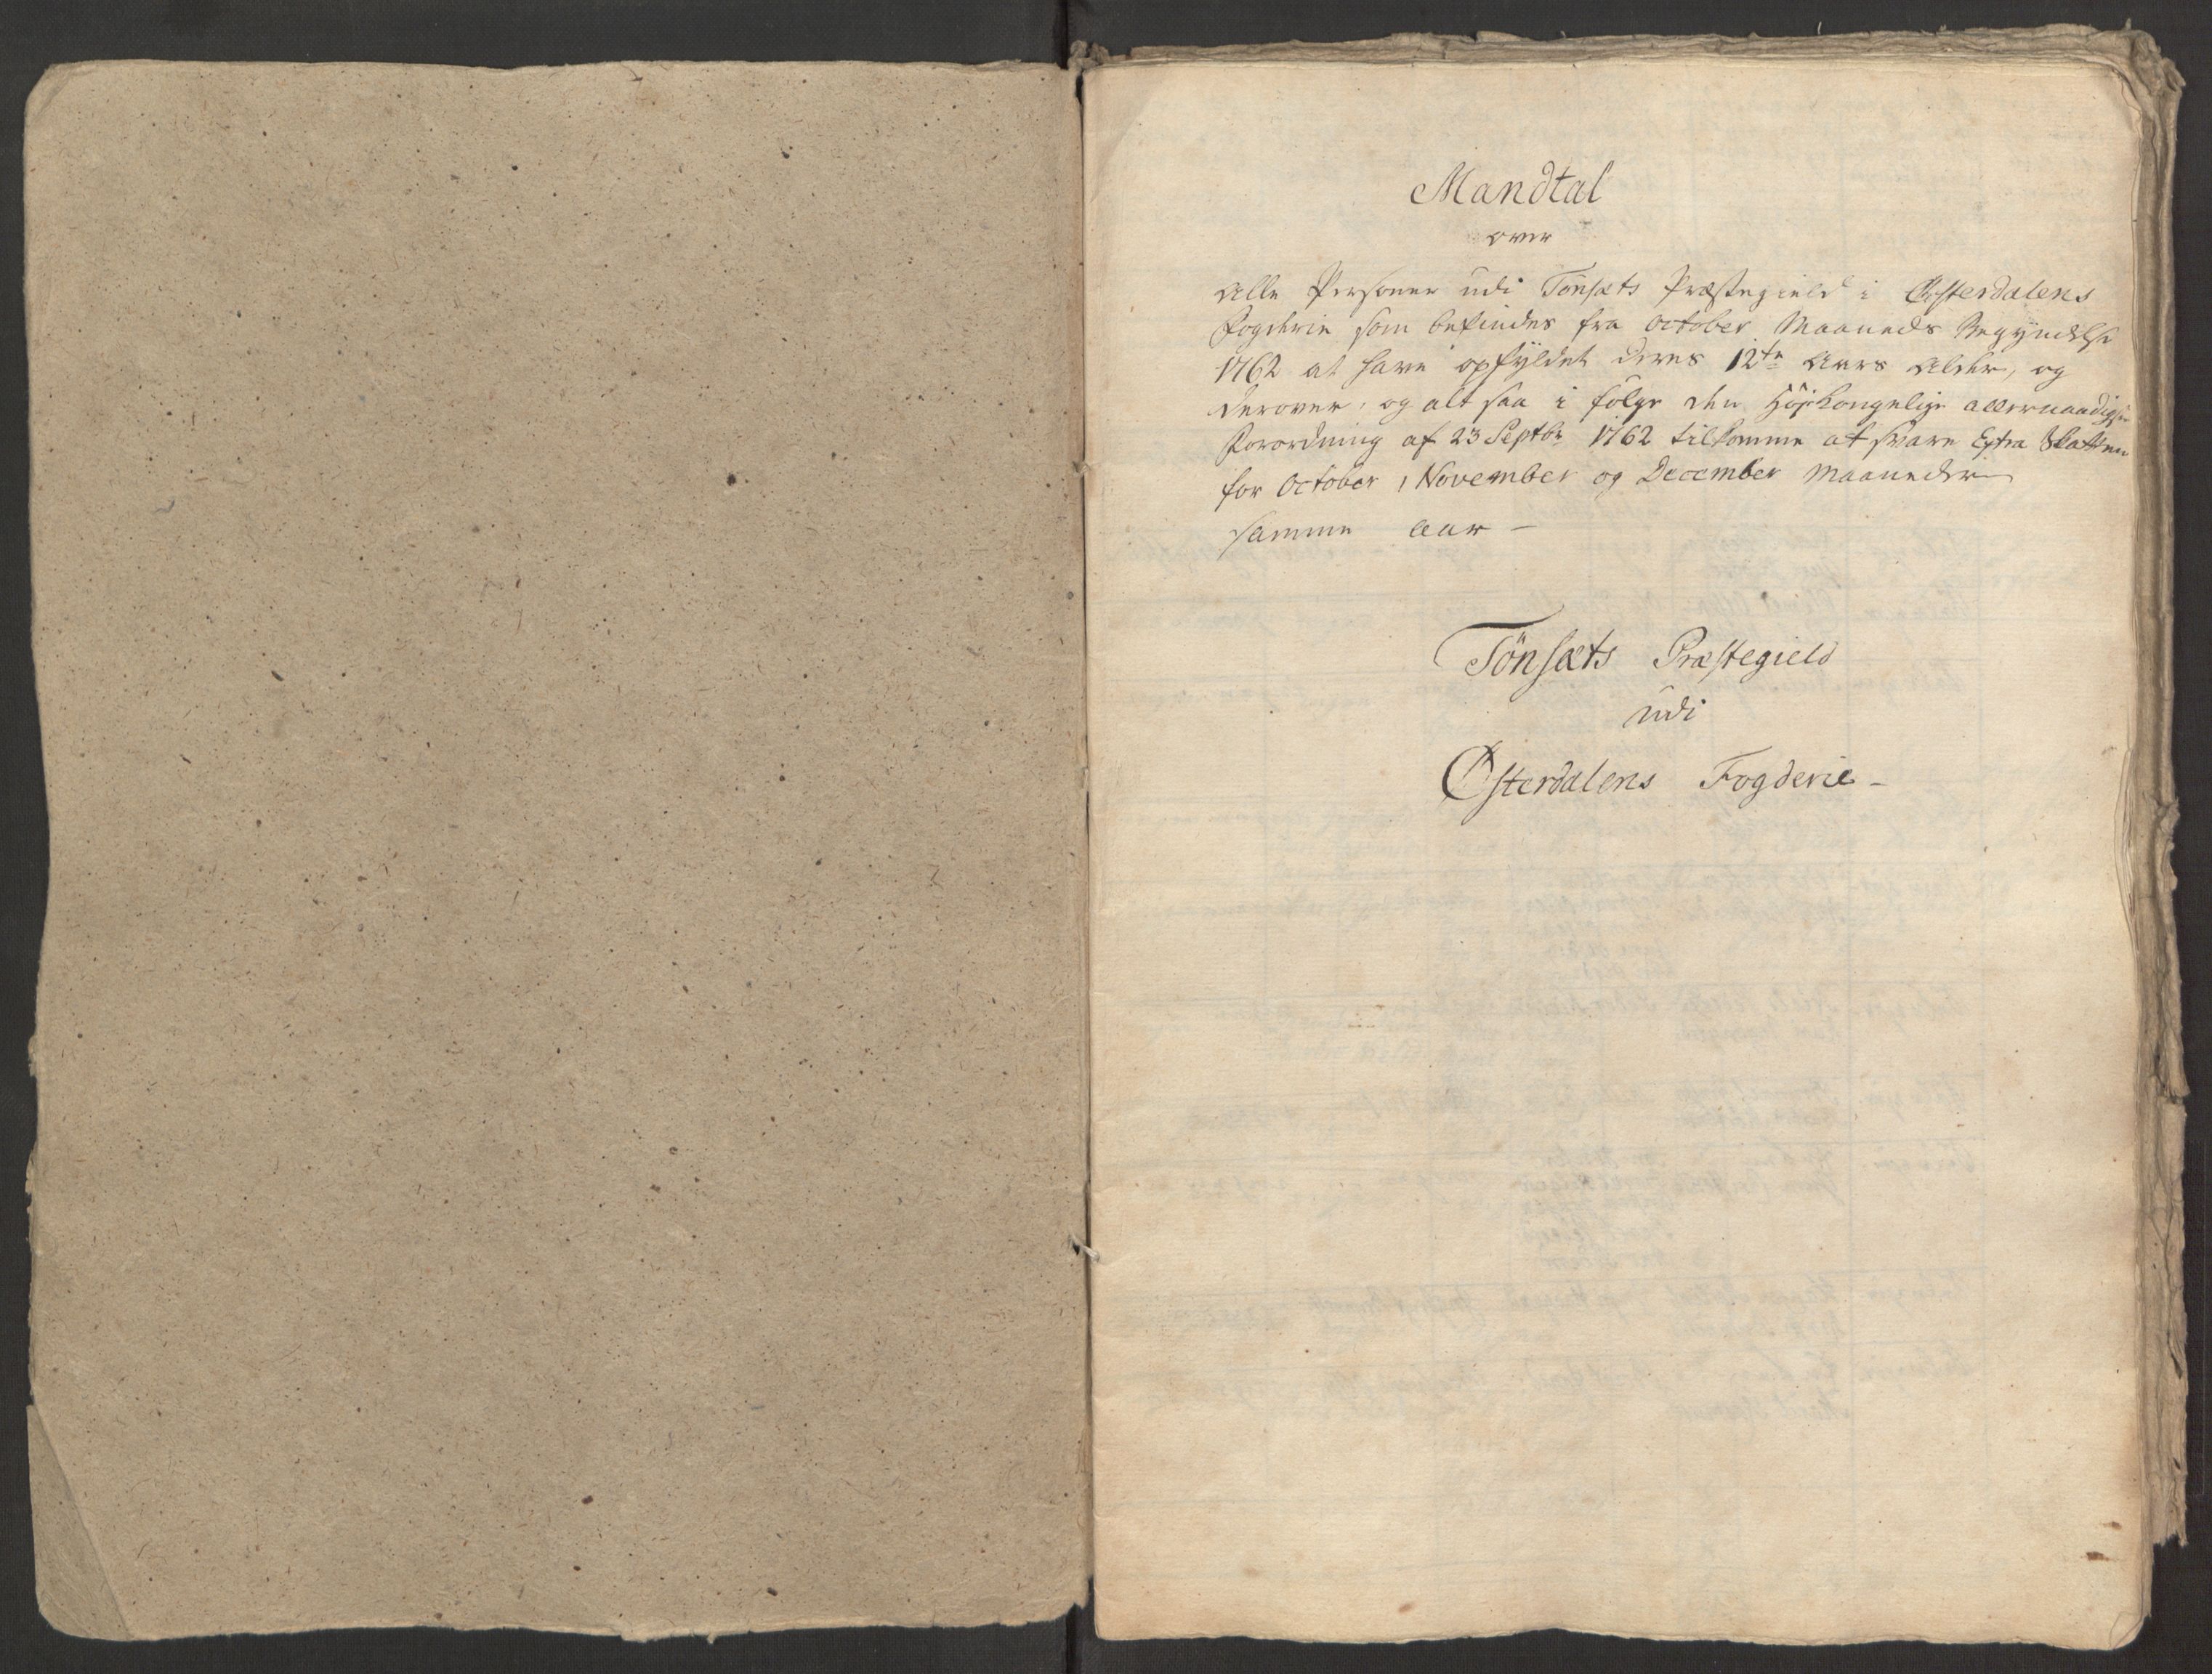 Mandtal
over
Alle Personer udi Tönsæts Præstegield i Østerdalens
Fogderie som befindes fra October Maaneds Begyndelse
1762 at have opfyldet deres 12te Aars Alder, og
derover, og alt saa i følge den Höjkongelige allernaadigste
Forordning af 23 Septbr 1762 tilkomme at svare Extra Skatten
for October, November og December Maaneder
samme Aar -
Tönsæts Præstegield
udi
Østerdalens Fogderie -